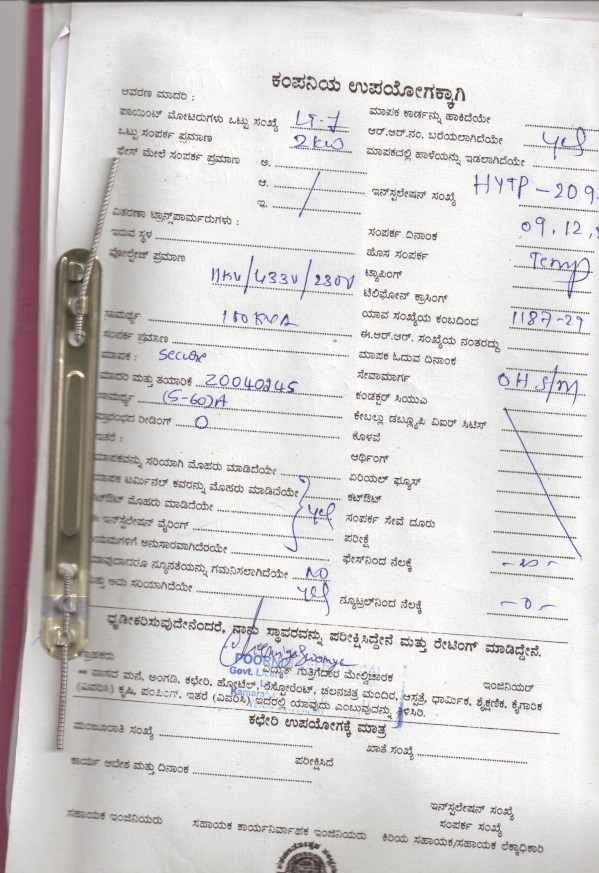 ಕಂಪನಿಯ ಉಪಯೋಗಕ್ಕಾಗಿ
ಆವರಣ ಮಾದರಿ :
ಪಾಯಿಂಟ್ ಮೋಟರುಗಳು ಒಟ್ಟು ಸಂಖ್ಯೆ LT-7
ಒಟ್ಟು ಸಂಪರ್ಕ ಪ್ರಮಾಣ 2KW
ಫೇಸ್ ಮೇಲೆ ಸಂಪರ್ಕ ಪ್ರಮಾಣ ಅ.
ಆ.
ಇ.
ವಿತರಣಾ ಟ್ರಾನ್ಸ್‌ಫಾರ್ಮರುಗಳು :
ಇರುವ ಸ್ಥಳ
ವೋಲ್ಟೇಜ್ ಪ್ರಮಾಣ
11KV/433V/230V
ಸಾಮರ್ಥ್ಯ 100KVA
ಸಂಪರ್ಕ ಪ್ರಮಾಣ
ಮಾಪಕ : Secure
ಮಾದರಿ ಮತ್ತು ತಯಾರಿಕೆ 20040245
ಸಾಮರ್ಥ್ಯ (5-60)A
ಪ್ರಾರಂಭದ ರೀಡಿಂಗ್ 0
ಮಾಪಕವನ್ನು ಸರಿಯಾಗಿ ಮೊಹರು ಮಾಡಿದೆಯೇ
ಮಾಪಕ ಟರ್ಮಿನಲ್ ಕವರನ್ನು ಮೊಹರು ಮಾಡಿದೆಯೇ
ಕಟ್‌ಔಟ್ ಮೊಹರು ಮಾಡಿದೆಯೇ yes
ಈ ಇನ್ಸ್ಟಲೇಷನ್ ವೈರಿಂಗ್
ನಿಯಮಗಳಿಗೆ ಅನುಸಾರವಾಗಿದೆಯೇ
ಯಾವುದಾದರೂ ನ್ಯೂನತೆಯನ್ನು ಗಮನಿಸಲಾಗಿದೆಯೇ NO
ಮತ್ತು ಅದು ಸರಿಯಾಗಿದೆಯೇ yes
ಮಾಪಕ ಕಾರ್ಡನ್ನು ಹಾಕಿದೆಯೇ
ಆರ್.ಆರ್.ನಂ. ಬರೆಯಲಾಗಿದೆಯೇ yes
ಮಾಪಕದಲ್ಲಿ ಹಾಳೆಯನ್ನು ಇಡಲಾಗಿದೆಯೇ
ಇನ್ಸ್ಟಲೇಷನ್ ಸಂಖ್ಯೆ HYTP-209
ಸಂಪರ್ಕ ದಿನಾಂಕ 09.12.
ಹೊಸ ಸಂಪರ್ಕ Temp
ಟ್ಯಾಪಿಂಗ್
ಟೆಲಿಫೋನ್ ಕ್ರಾಸಿಂಗ್
ಯಾವ ಸಂಖ್ಯೆಯ ಕಂಬದಿಂದ 1187-29
ಈ.ಆರ್.ಆರ್. ಸಂಖ್ಯೆಯ ನಂತರದ್ದು
ಮಾಪಕ ಓದುವ ದಿನಾಂಕ
ಸೇವಾಮಾರ್ಗ OH S/M
ಕಂಡಕ್ಟರ್ ಸಿಯುಎ
ಕೇಬಲ್ಲು ಡಬ್ಲ್ಯೂಪಿ ವಿಐರ್ ಸಿಟಿಸ್
ಕೊಳವೆ
ಅರ್ಥಿಂಗ್
ಏರಿಯಲ್ ಫ್ಯೂಸ್
ಕಟ್‌ಔಟ್
ಸಂಪರ್ಕ ಸೇವೆ ದೂರು
ಪರೀಕ್ಷೆ
ಫೇಸ್‌ನಿಂದ ನೆಲಕ್ಕೆ
ನ್ಯೂಟ್ರಲ್‌ನಿಂದ ನೆಲಕ್ಕೆ -0-
ಧೃಡೀಕರಿಸುವುದೇನೆಂದರೆ, ನಾನು ಸ್ಥಾವರವನ್ನು ಪರೀಕ್ಷಿಸಿದ್ದೇನೆ ಮತ್ತು ರೇಟಿಂಗ್ ಮಾಡಿದ್ದೇನೆ.
ಗ್ರಾಹಕರು ವಿದ್ಯುತ್ ಗುತ್ತಿಗೆದಾರ ಮೇಲ್ವಿಚಾರಕ ಇಂಜಿನಿಯರ್
** ವಾಸದ ಮನೆ, ಅಂಗಡಿ, ಕಛೇರಿ, ಹೋಟೆಲ್, ರೆಸ್ಟೋರೆಂಟ್, ಚಲನಚಿತ್ರ ಮಂದಿರ, ಆಸ್ಪತ್ರೆ, ಧಾರ್ಮಿಕ, ಶೈಕ್ಷಣಿಕ, ಕೈಗಾರಿಕ
(ವಿವರಿಸಿ) ಕೃಷಿ, ಪಂಪಿಂಗ್, ಇತರೆ (ವಿವರಿಸಿ) ಇದರಲ್ಲಿ ಯಾವುದು ಎಂಬುವುದನ್ನು ತಿಳಿಸಿರಿ.
ಕಛೇರಿ ಉಪಯೋಗಕ್ಕೆ ಮಾತ್ರ
ಮಂಜೂರಾತಿ ಸಂಖ್ಯೆ ಖಾತೆ ಸಂಖ್ಯೆ
ಪರೀಕ್ಷಿಸಿದೆ
ಕಾರ್ಯ ಆದೇಶ ಮತ್ತು ದಿನಾಂಕ
ಇನ್ಸ್ಟಲೇಷನ್ ಸಂಖ್ಯೆ
ಸಂಪರ್ಕ ಸಂಖ್ಯೆ
ಸಹಾಯಕ ಇಂಜಿನಿಯರು ಸಹಾಯಕ ಕಾರ್ಯನಿರ್ವಾಹಕ ಇಂಜಿನಿಯರು ಕಿರಿಯ ಸಹಾಯಕ/ಸಹಾಯಕ ಲೆಕ್ಕಾಧಿಕಾರಿ